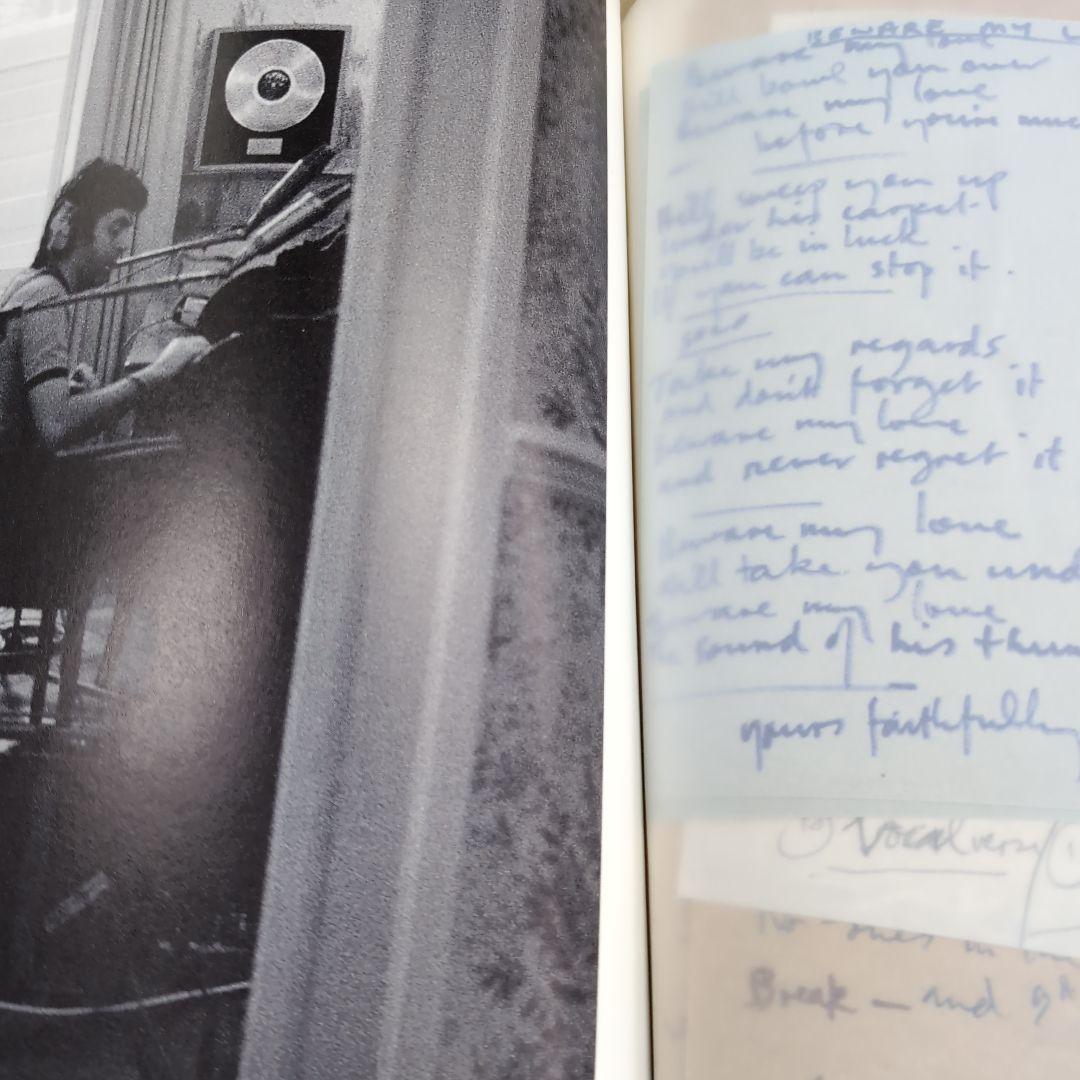 BEWARE MY L
beware my love
he'll bowl you over
beware my love
before you're much
he'll sweep you up
under his carpet
you'll be in luck
if you can stop it.
solo
Take my regards
and don't forget it
beware my love
and never regret it
beware my love
he'll take you und
beware my love
the sound of his thun
yours faithfully
Vocal vers
No-ones in
Break - and